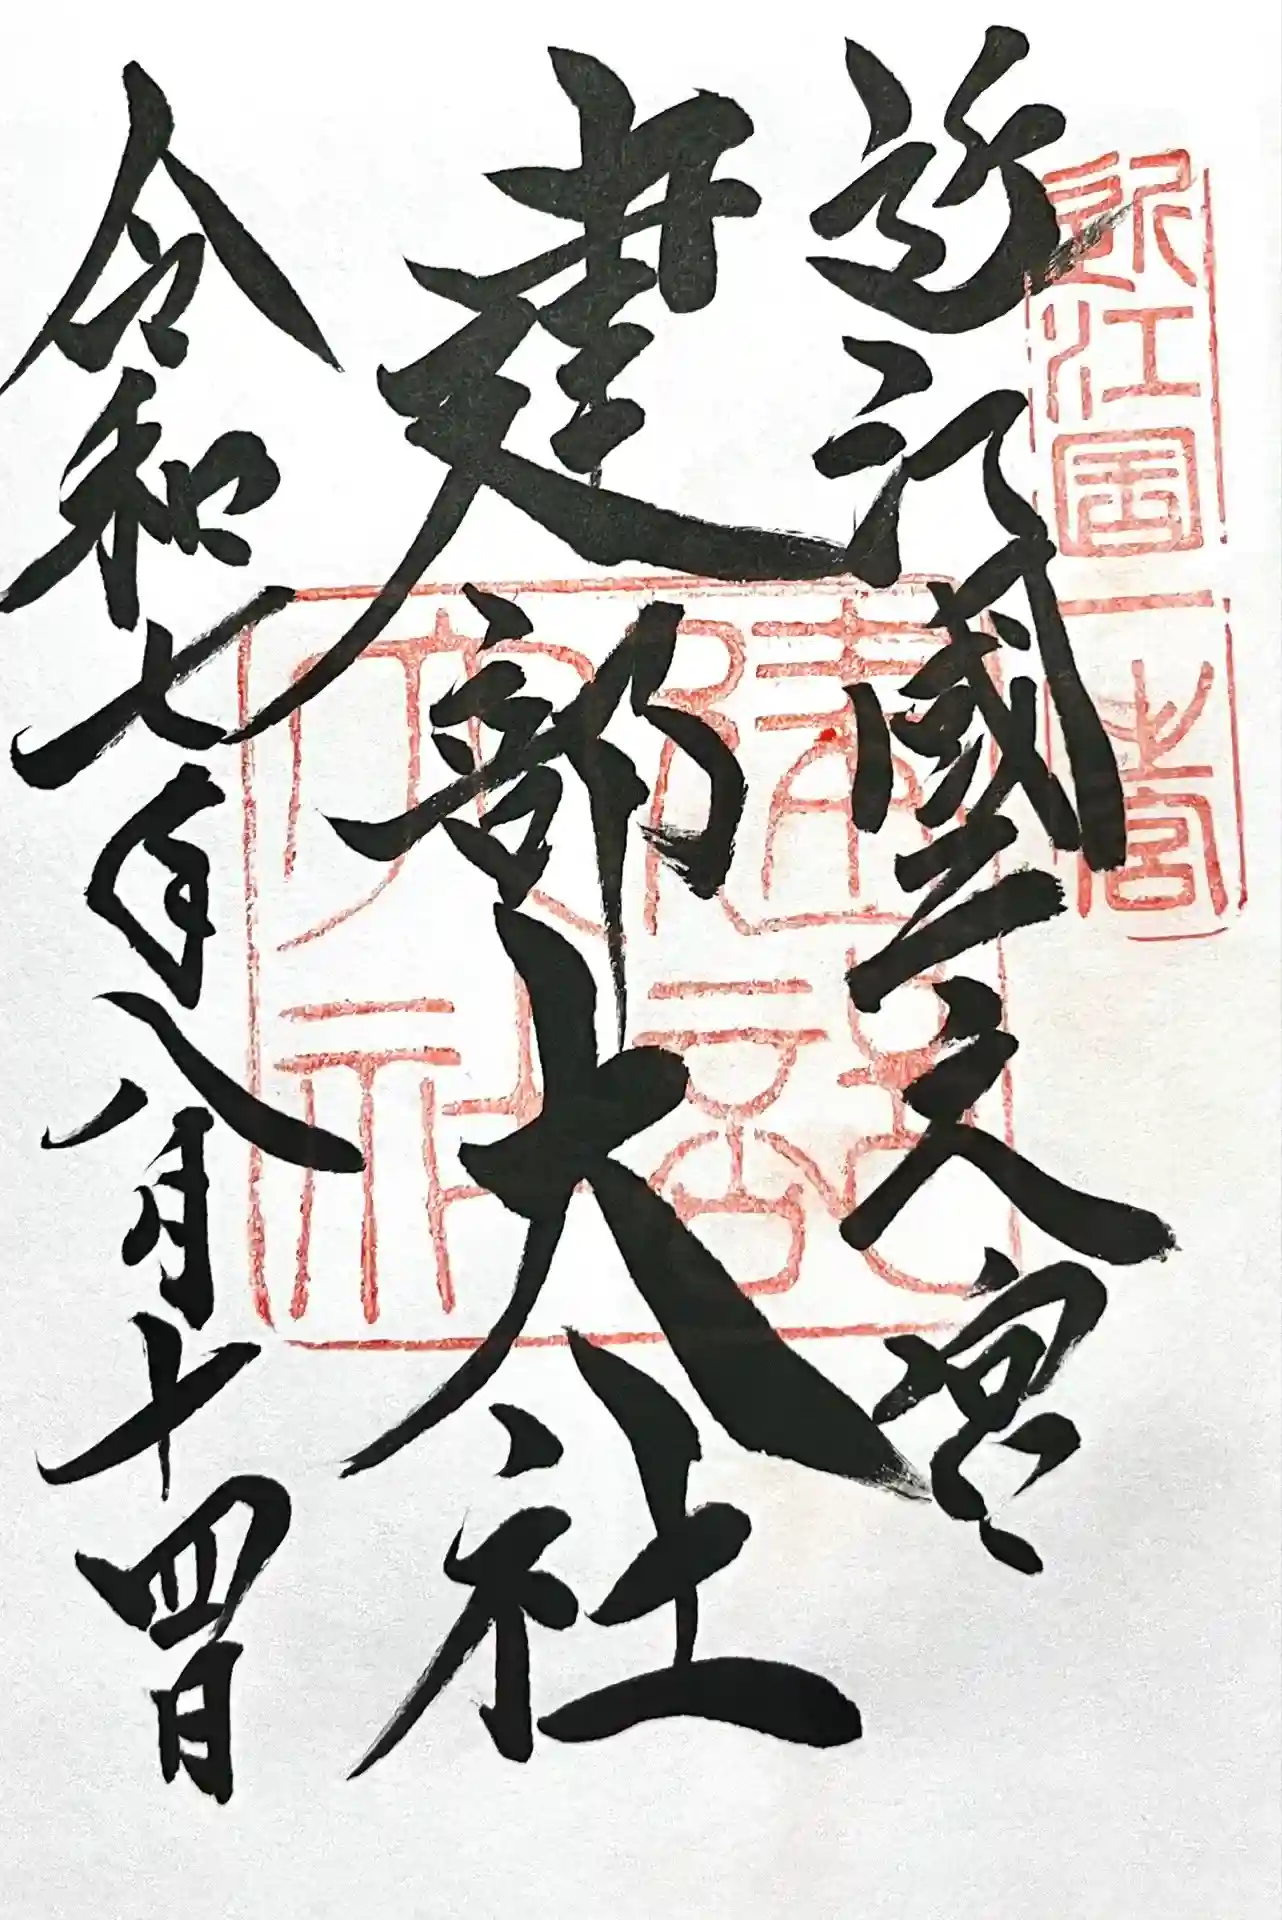 近江国一之宮
近江國一之宮
建部大社
建部大社
令和七年八月十四日